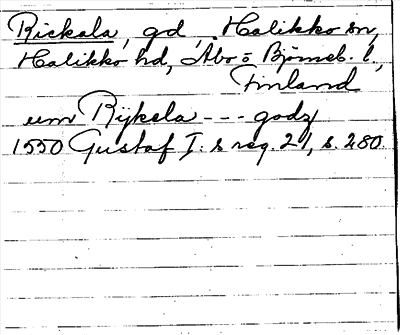 Rickala, gd, Halikko sn,
Halikko hd, Åbo o Björneb. l,
Finland
um Rijkela --- godz
1550 Gustaf I:s reg. 21, s. 280.